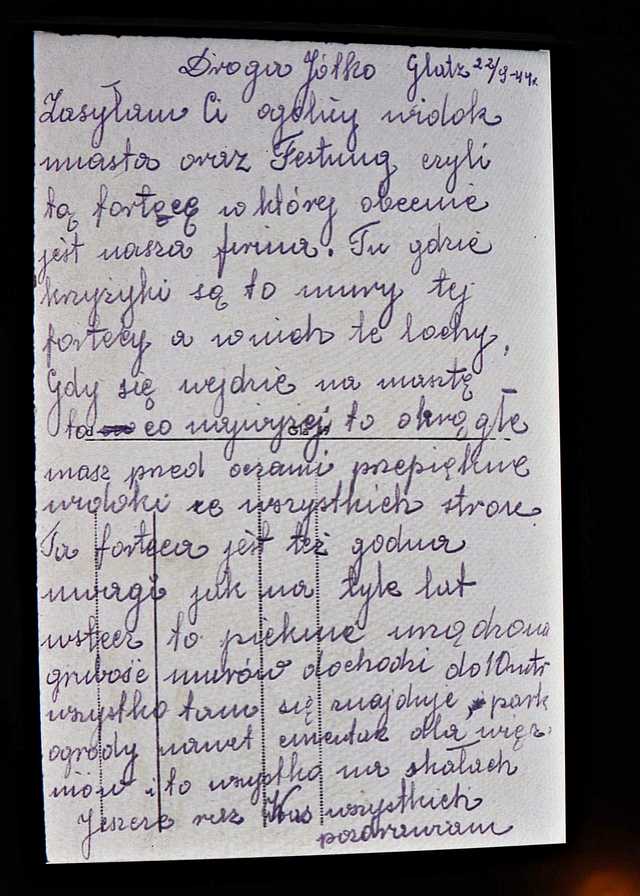 Droga Jólko Glatz 22/9-44r.
Zasyłam Ci ogólny widok
miasta oraz Festung czyli
tą fortecę w której obecnie
jest nasza firma. Tu gdzie
krzyżyki są to mury tej
fortecy a w nich te lochy,
Gdy się wejdzie na masztę
to co najwyżej to okrągłe
masz przed oczami przepiękne
widoki ze wszystkich stron.
Ta forteca jest też godna
uwagi jak na tyle lat
wstecz to pięknie urządzona
grubość murów dochodzi do 10 mtr
wszystko tam się znajduje, park
ogrody nawet cmentarz dla więź-
niów i to wszystko na skałach
Jeszcze raz Was wszystkich
pozdrawiam